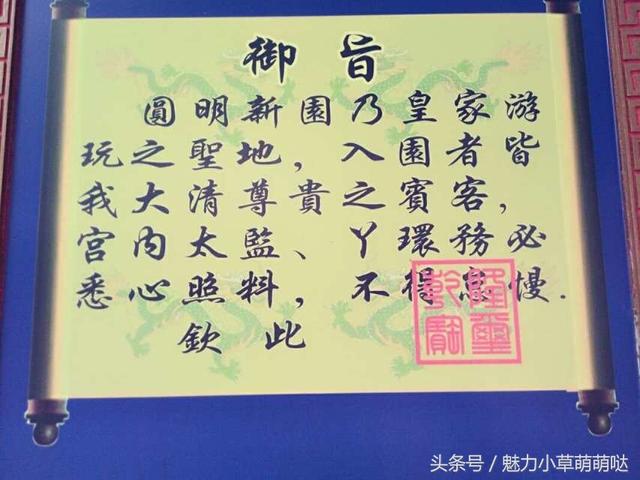 御旨
圓明新園乃皇家游
玩之聖地，入園者皆
我大清尊貴之賓客，
宮内太監、丫環務必
悉心照料，不得怠慢.
欽此
头条号／魅力小草萌萌哒